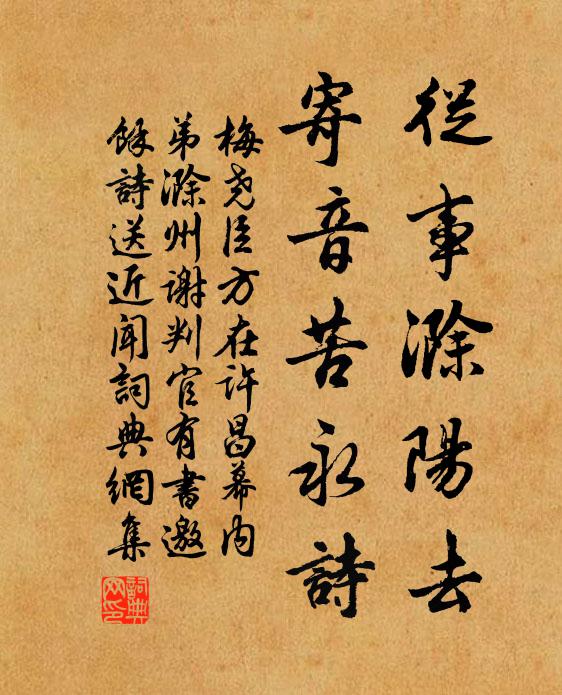 從事滁陽去
寄音苦永詩
梅堯臣方在許昌幕内
弟滁州謝判官有書邀
餘詩送近聞詞典網集
詞典
网印